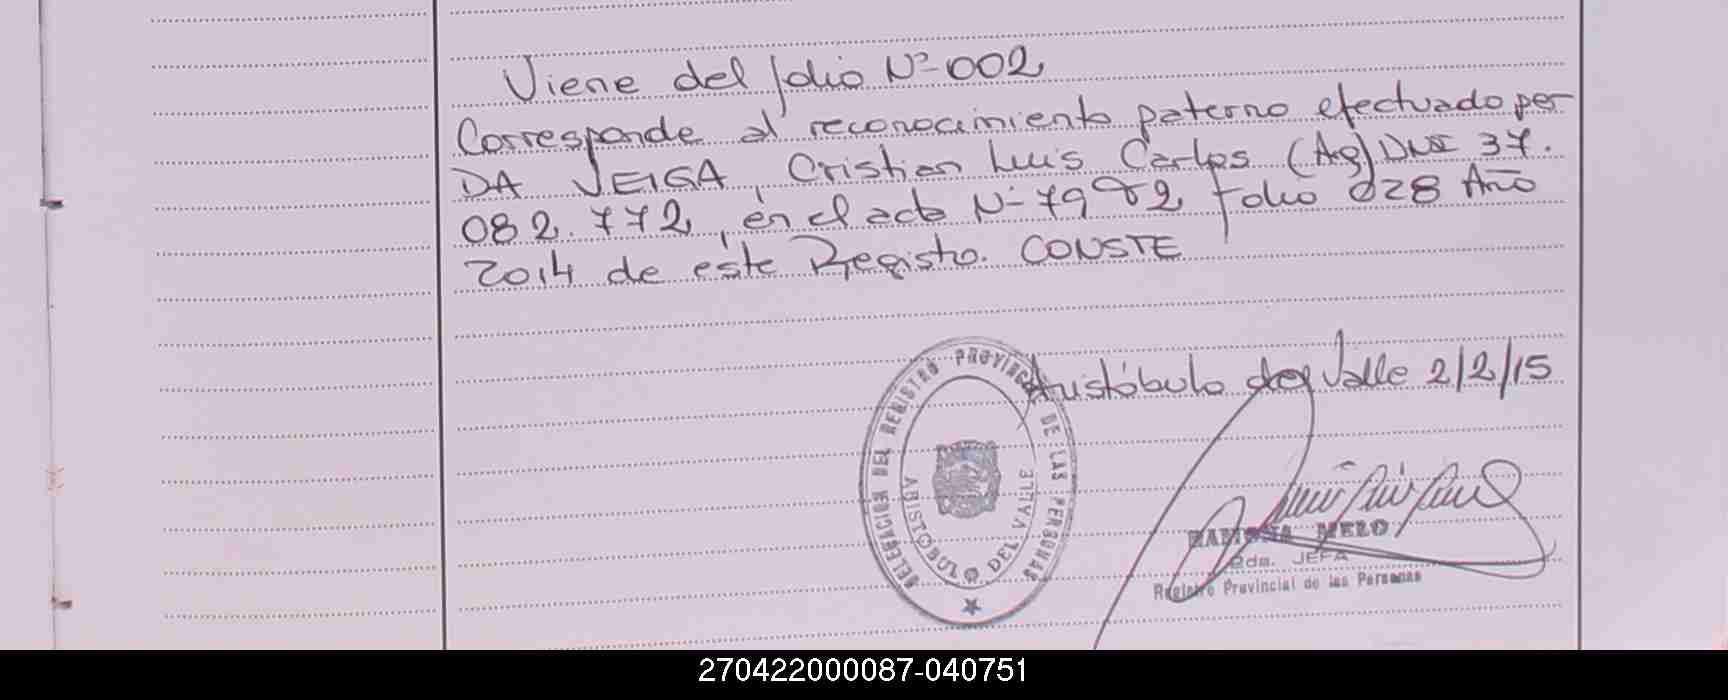 Viene del folio Nº 002
Corresponde al reconocimiento paterno efectuado por
DA VEIGA, Cristian Luis Carlos (Ag) DNI 37.
082.772, en el acta Nº 7982 Folio 028 Año
2014 de este Registro. CONSTE
Aristóbulo del Valle 2/2/15
DELEGACION DEL REGISTRO PROVINCIAL DE LAS PERSONAS
ARISTOBULO DEL VALLE
RAMONA MELO
JEFA
Registro Provincial de las Personas
270422000087-040751